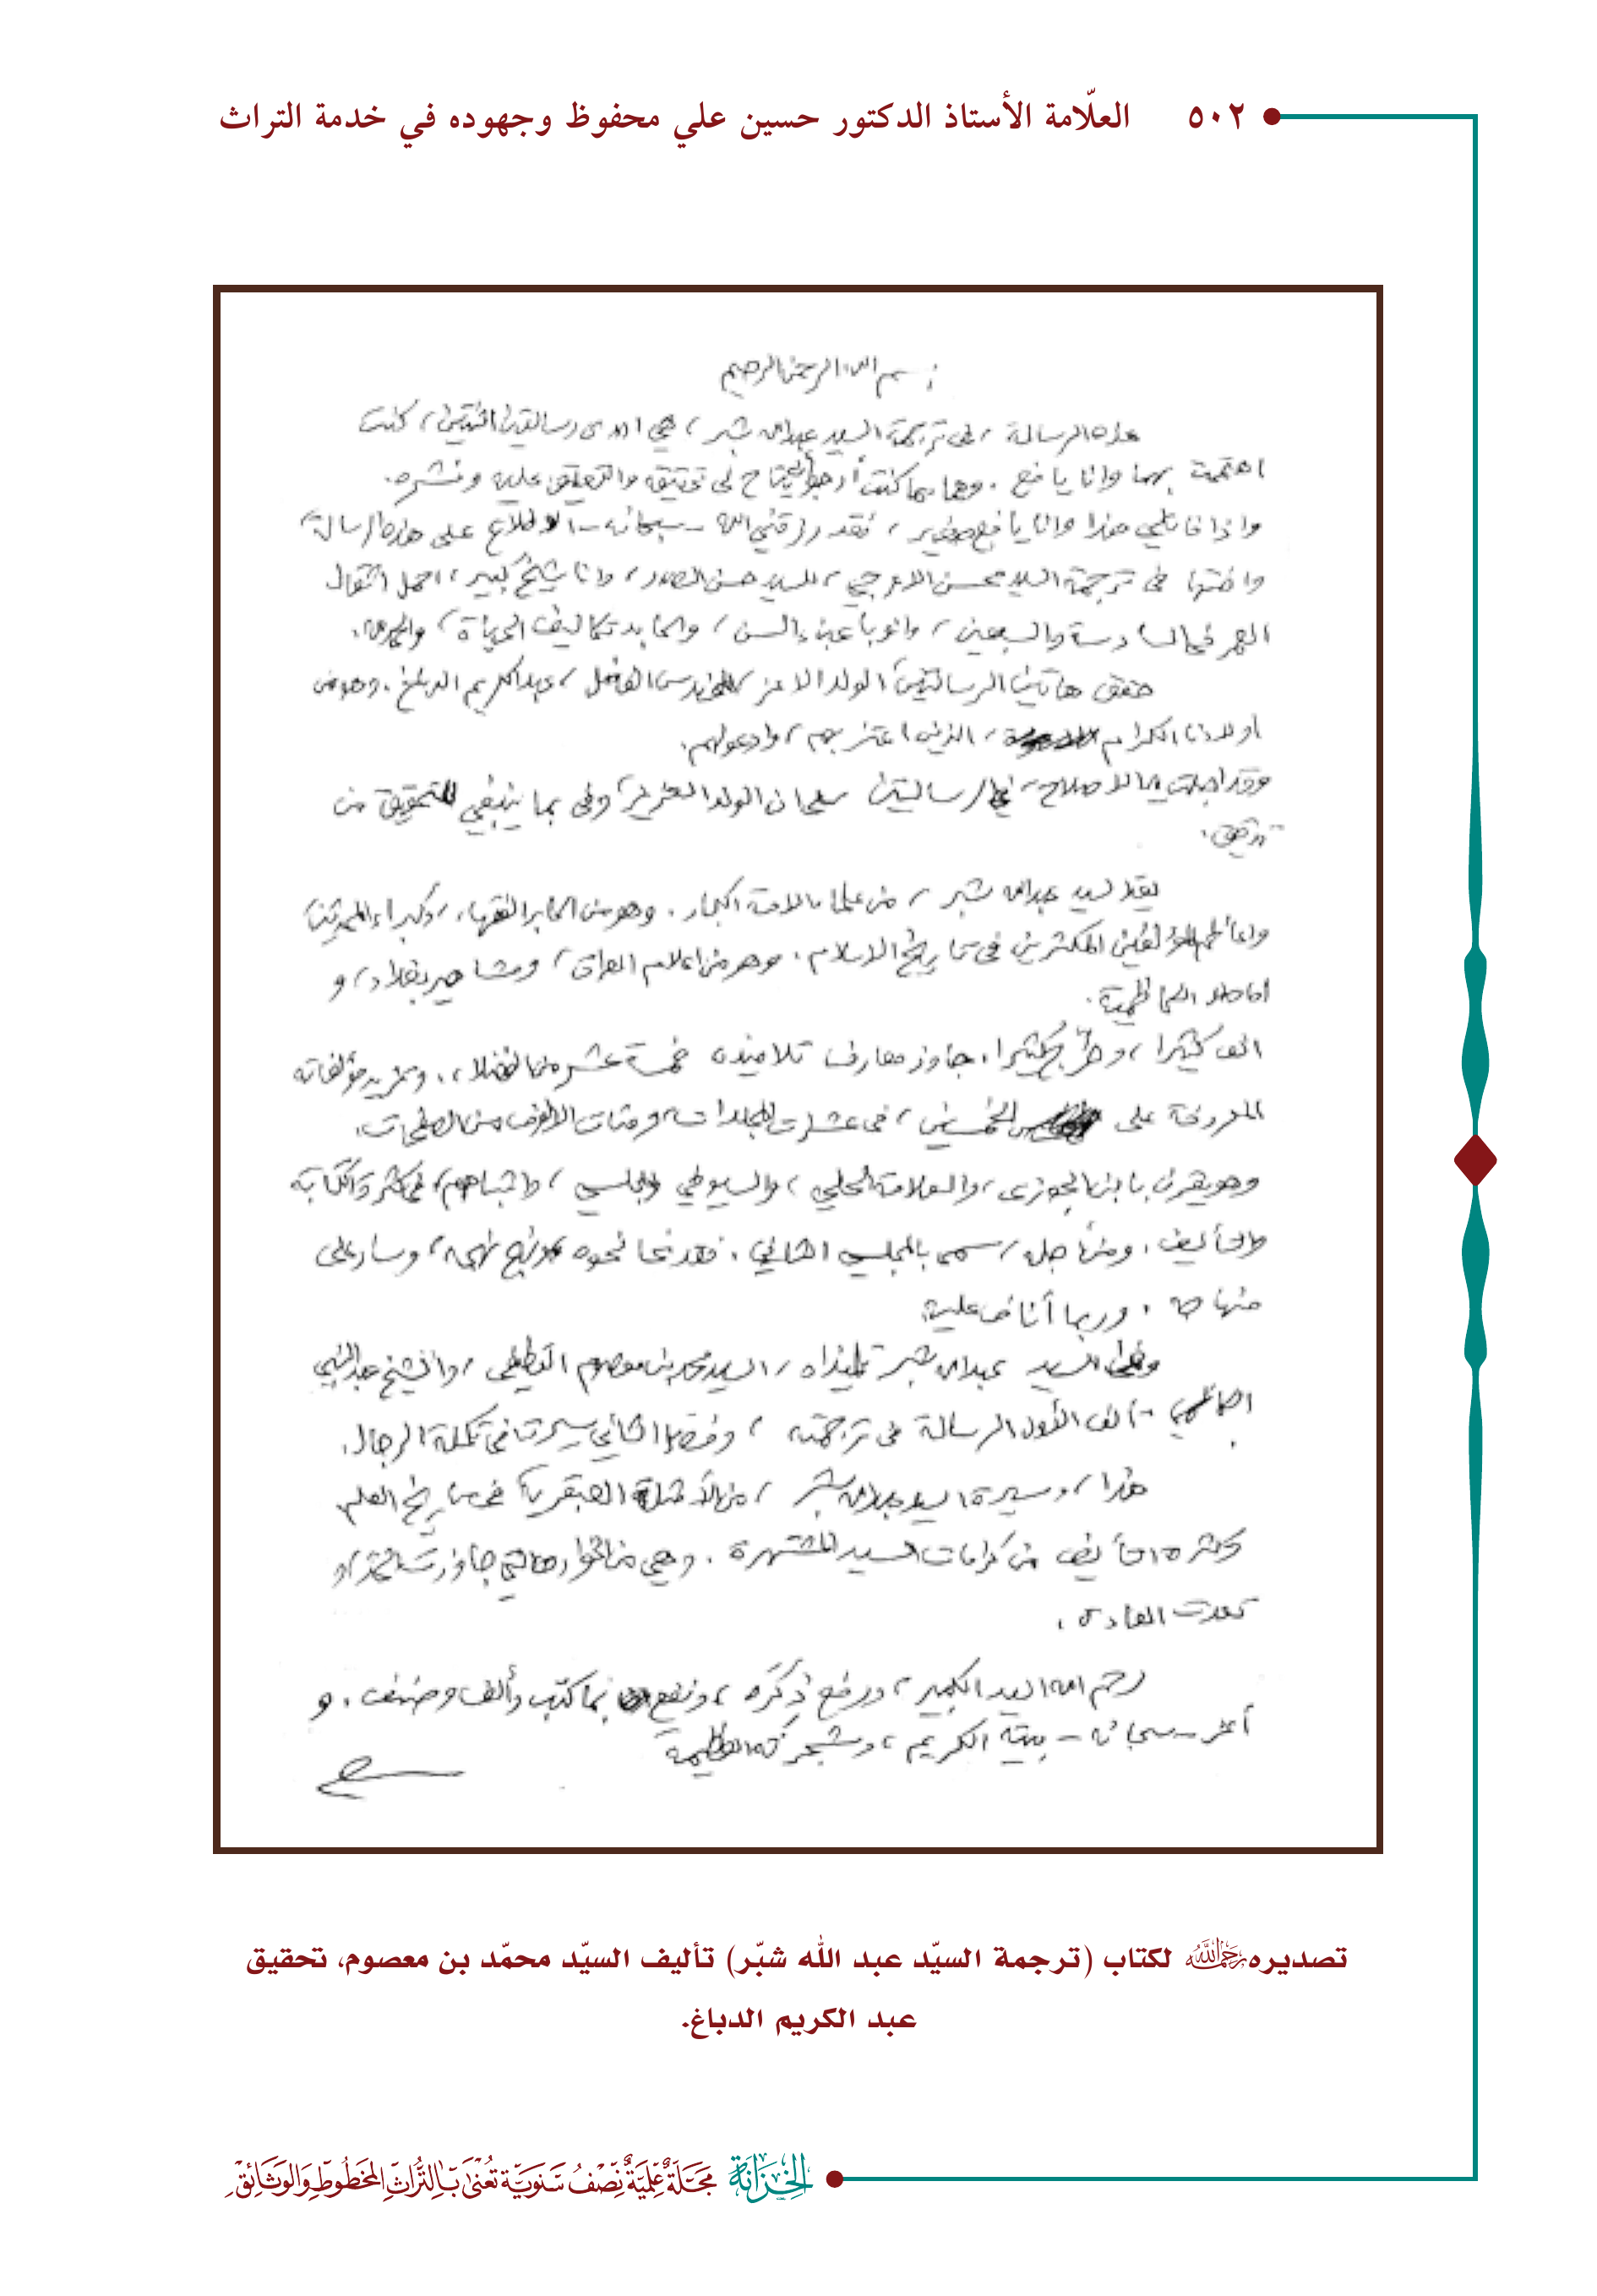 ٥٠٢ العلّامة الأستاذ الدكتور حسين علي محفوظ وجهوده في خدمة التراث
بسم الله الرحمن الرحيم
هذه الرسالة، في ترجمة السيد عبدالله شبر، هي احدى رسالتين اثنتين، كنت
اهتممت بهما وانا يافع. وهما مما كنت أرجو في تحقيقه والتعليق عليه ونشره.
واذا فاتني هذا وانا يافع صغير، فقد رزقني الله - سبحانه - الاطلاع على هذه الرسالة،
واختها في ترجمة السيد محسن الاعرجي، للسيد حسن الصدر، وانا شيخ كبير، احمل اثقال
العمر في السادسة والسبعين، وانوء بأعباء السن، واكابد تكاليف الحياة،
حقق هاتين الرسالتين الولد الاعز، المهندس الفاضل، عبدالكريم الدباغ. وهو من
اولادنا الكرام، الذين اعتز بهم، وادعو لهم.
في الرسالتين الولد العزيز وفى بما ينبغي للتحقيق من
تدقيق.
السيد عبدالله شبر، من علماء الامة الكبار. وهو من اكابر الفقهاء، وكبراء المحدثين،
واعاظم المؤلفين المكثرين في تاريخ الاسلام. وهو من اعلام العراق، ومشاهير بغداد، و
افاضل الكاظمية.
الف كثيرا، وخرّج كثيرا. جاوز معارف تلاميذه خمسة عشر من الفضلاء. وتزيد مؤلفاته
المعروفة على الخمسين، في عشرات المجلدات، ومئات الالوف من الصفحات.
وهو يقرن بابن الجوزي، والعلامة الحلي، والسيوطي والمجلسي، واشباههم، في كثرة الكتابة
والتأليف. ومن أجله، سمي بالمجلسي الثاني. فقد نحا نحوه ونهج نهجه، وسار على
منهاجه. وربما أناف عليه.
السيد عبدالله شبر تلميذاه، السيد محمد بن معصوم القطيفي، والشيخ عبدالنبي
الكاظمي. ألف الأول الرسالة في ترجمته، الثاني سيرته في تكملة الرجال.
هذا، وسيرة السيد عبدالله شبر، من الأمثلة العبقرية في تاريخ العلم.
وكثرة التأليف من كرامات السيد المشتهرة. وهي من الخوارق التي جاوزت
العادة.
رحم الله السيد الكبير، ورفع ذكره، ونفع بما كتب وألف وصنف. و
أعز - سبحانه - بيته الكريم، وشجرته العظيمة
تصديره رحمه الله لكتاب (ترجمة السيّد عبد الله شبّر) تأليف السيّد محمّد بن معصوم، تحقيق
عبد الكريم الدباغ.
الخزانة مجلة علمية نصف سنوية تعنى بالتراث المخطوط والوثائق